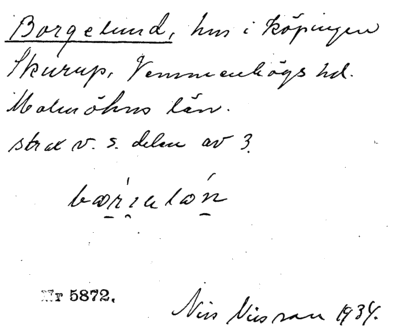 Borgelund, hus i köpingen
Skurup, Vemmenhögs hd.
Malmöhus län.
strax v. s. delen av 3.
Nr 5872.
Nils Nilsson 1934.